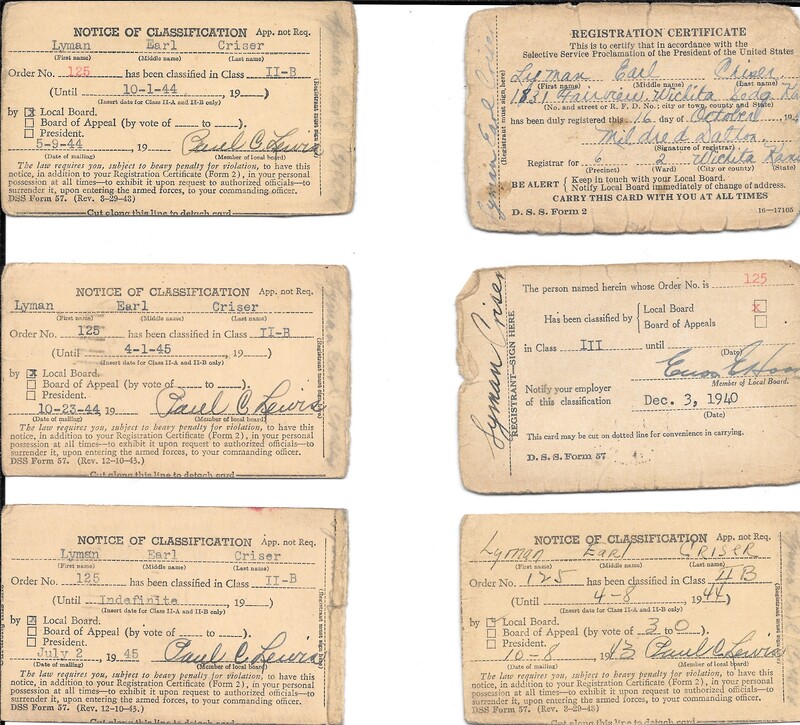 NOTICE OF CLASSIFICATION App. not Req.
Lyman Earl Criser
(First name) (Middle name) (Last name)
Order No. 125 has been classified in Class II-B
(Until 10-1-44, 19 )
(Insert date for Class II-A and II-B only)
by x Local Board.
Board of Appeal (by vote of to ).
President.
5-9-44, 19 Paul C Lewis
(Date of mailing) (Member of local board)
The law requires you, subject to heavy penalty for violation, to have this
notice, in addition to your Registration Certificate (Form 2), in your personal
possession at all times—to exhibit it upon request to authorized officials—to
surrender it, upon entering the armed forces, to your commanding officer.
DSS Form 57. (Rev. 3-29-43)
Cut along this line to detach card
REGISTRATION CERTIFICATE
This is to certify that in accordance with the
Selective Service Proclamation of the President of the United States
Lyman Earl Criser
(First name) (Middle name) (Last name)
1831 Fairview Wichita Sedg
(No. and street or R. F. D. No.; city or town, county and State)
has been duly registered this 16 day of October, 194
Mildred Dalton
(Signature of registrar)
Registrar for 6 2 Wichita Kans
(Precinct) (Ward) (City or county) (State)
BE ALERT { Keep in touch with your Local Board.
Notify Local Board immediately of change of address.
CARRY THIS CARD WITH YOU AT ALL TIMES
D. S. S. Form 2 16—17105
Lyman Earl Criser
(Registrant must sign here)
NOTICE OF CLASSIFICATION App. not Req.
Lyman Earl Criser
(First name) (Middle name) (Last name)
Order No. 125 has been classified in Class II-B
(Until 4-1-45, 19 )
(Insert date for Class II-A and II-B only)
by x Local Board.
Board of Appeal (by vote of to ).
President.
10-23-44 19 Paul C Lewis
(Date of mailing) (Member of local board)
The law requires you, subject to heavy penalty for violation, to have this
notice, in addition to your Registration Certificate (Form 2), in your personal
possession at all times—to exhibit it upon request to authorized officials—to
surrender it, upon entering the armed forces, to your commanding officer.
DSS Form 57. (Rev. 12-10-43.)
Cut along this line to detach card
Lyman Criser
REGISTRANT—SIGN HERE
The person named herein whose Order No. is 125
Has been classified by { Local Board x
Board of Appeals
in Class III until
(Date)
Member of Local Board.
Notify your employer
of this classification Dec. 3, 1940
(Date)
This card may be cut on dotted line for convenience in carrying.
D. S. S. Form 57
NOTICE OF CLASSIFICATION App. not Req.
Lyman Earl Criser
(First name) (Middle name) (Last name)
Order No. 125 has been classified in Class II-B
(Until Indefinite, 19 )
(Insert date for Class II-A and II-B only)
by x Local Board.
Board of Appeal (by vote of to ).
President.
July 2, 19 45 Paul C Lewis
(Date of mailing) (Member of local board)
The law requires you, subject to heavy penalty for violation, to have this
notice, in addition to your Registration Certificate (Form 2), in your personal
possession at all times—to exhibit it upon request to authorized officials—to
surrender it, upon entering the armed forces, to your commanding officer.
DSS Form 57. (Rev. 12-10-43.)
Cut along this line to detach card
NOTICE OF CLASSIFICATION App. not Req.
Lyman Earl CRISER
(First name) (Middle name) (Last name)
Order No. 125 has been classified in Class
(Until 4-8, 1944)
(Insert date for Class II-A and II-B only)
by Local Board.
Board of Appeal (by vote of 3 to 0).
President.
10-8, 1943 Paul C Lewis
(Date of mailing) (Member of local board)
The law requires you, subject to heavy penalty for violation, to have this
notice, in addition to your Registration Certificate (Form 2), in your personal
possession at all times—to exhibit it upon request to authorized officials—to
surrender it, upon entering the armed forces, to your commanding officer.
DSS Form 57. (Rev. 3-29-43)
Cut along this line to detach card